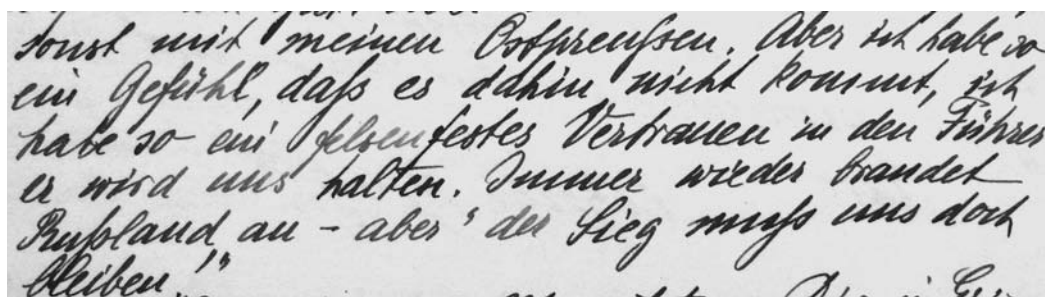 sonst mit meinen Ostpreußen. Aber ich habe so
ein Gefühl, daß es dahin nicht kommt, ich
habe so ein felsenfestes Vertrauen in den Führer
er wird uns halten. Immer wieder brandet
Rußland an - aber "der Sieg muß uns doch
bleiben!"